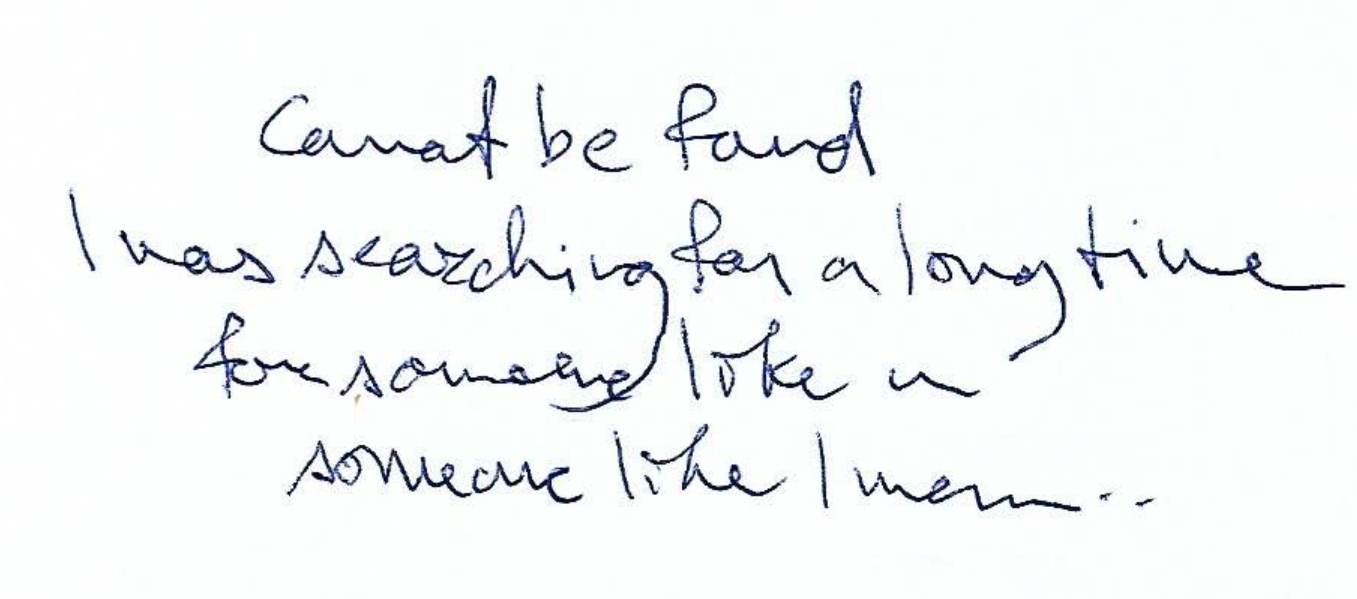 Cannot be found
I was searching for a long time
for someone like
someone like I mean..